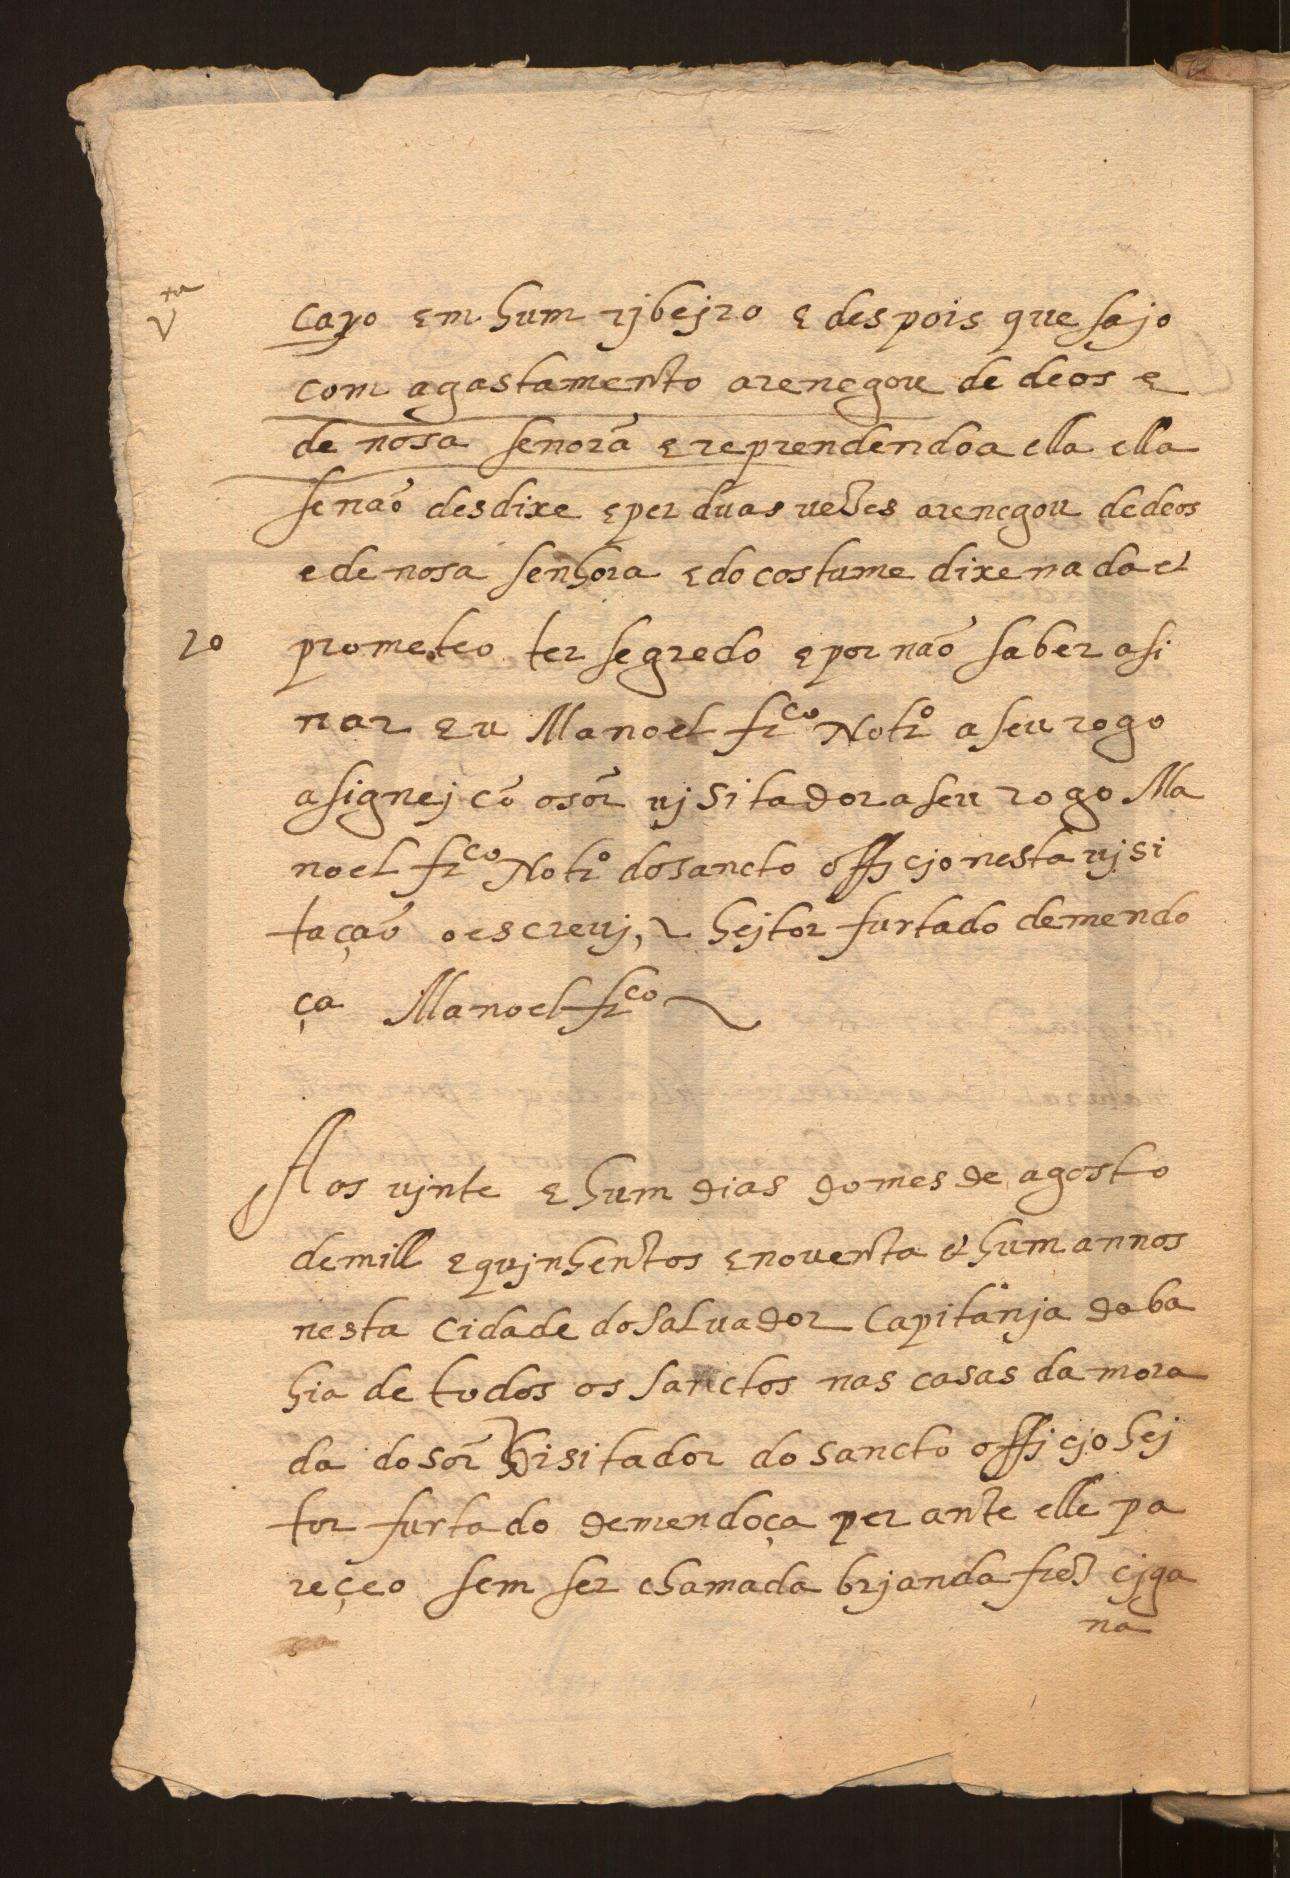 vta
cayo em hum rjbejro e despois que sajo
com agastamento arenegou de deos e
de nosa senorã e reprendendoa ella ella
se naõ desdixe e per duas vezes arenegou de deos
e de nosa senhora e do costume dixe nada e
20 prometeo ter segredo e por naõ saber asi
nar eu Manoel frco Notro a seu rogo
asignej cõ o sõr vjsitador a seu rogo Ma
noel frco Notro do sancto officjo nesta vjsi
taçaõ o escrevj, hejtor furtado de mendo
ça Manoel frco
Aos vjnte e hum dias do mes de agosto
de mill e qujnhentos e noventa e hum annos
nesta cidade do Salvador Capitanja da ba
hia de todos os sanctos nas casas da mora
da do sõr visitador do sancto officjo hej
tor furtado de mendoça per ante elle pa
reçeo sem ser chamada brjanda frz cjga
na